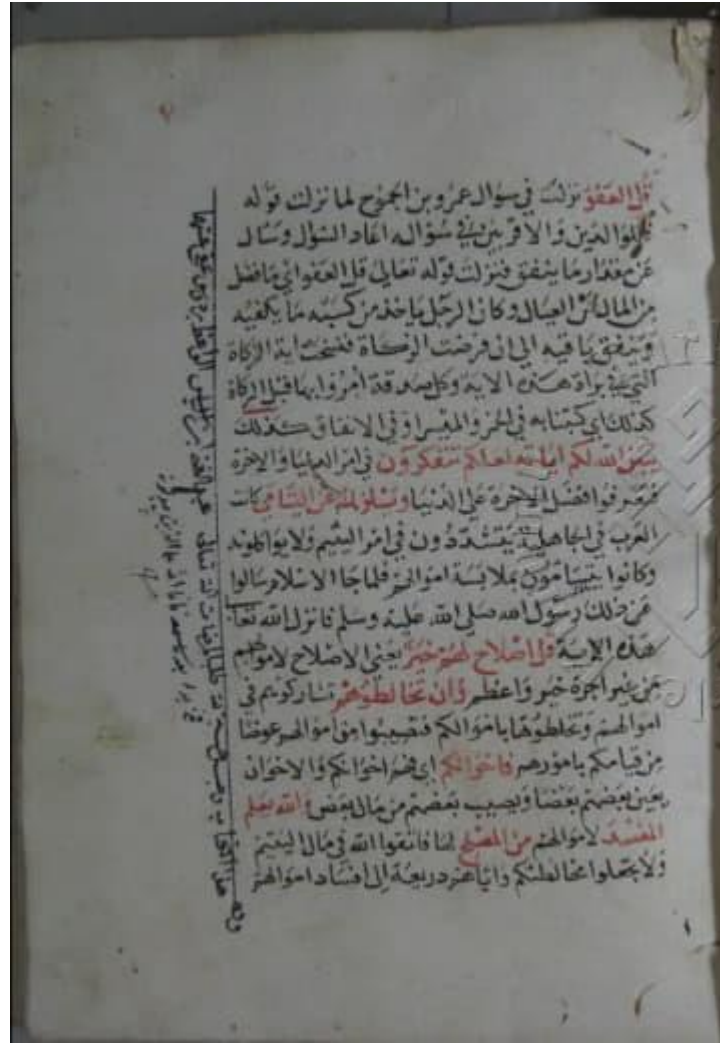 قُل العَفْوَ نزلت في سؤال عمرو بن الجموح لما نزلت قوله
فللوالدين والاقربين في سؤاله اعاد السؤال وسال
عن مقدار ما ينفق فنزلت قوله تعالى قل العفو اي ما فضل
من المال عن العيال وكان الرجل ياخذ من كسبه ما يكفيه
وينفق باقيه الى ان فرضت الزكاة فنسخت اية الزكاة
التي في براة هذه الاية وكل صدقة امروا بها قبل الزكاة
كذلك اي كبيانه في الخمر والميسر وفي الانفاق كذلك
يبين الله لكم ايات لعلكم تتفكرون في امر الدنيا والاخرة
فتعرفوا فضل الاخرة على الدنيا ويسئلونك عن اليتامى كانت
العرب في الجاهلية يتشددون في امر اليتيم ولا يواكلونه
وكانوا يتشامون بملابسة اموالهم فلما جا الاسلام سالوا
عن ذلك رسول الله صلى الله عليه وسلم فانزل الله تعا
هذه الاية قل اصلاح لهم خير يعني الاصلاح لاموالهم
من غير اجرة خير واعظم وان تخالطوهم تشاركوهم في
اموالهم وتخلطوها باموالكم فتصيبوا من اموالهم عوضا
من قيامكم بامورهم فاخوانكم اي فهم اخوانكم والاخوان
يعين بعضهم بعضا ويصيب بعضهم من مال بعض والله يعلم
المفسد لاموالهم من المصلح لها فاتقوا الله في مال اليتيم
ولا تجعلوا مخالطتكم واياهم ذريعة الى افساد اموالهم